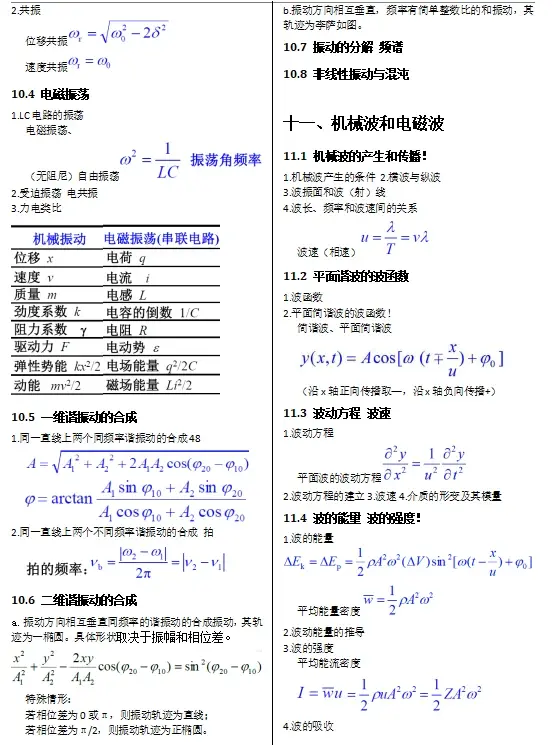 2.共振
位移共振 ω_r = √(ω_0² − 2δ²)
速度共振 ω_r = ω_0
10.4 电磁振荡
1.LC电路的振荡
电磁振荡、
(无阻尼)自由振荡 ω² = 1/LC 振荡角频率
2.受迫振荡 电共振
3.力电类比
机械振动 电磁振荡(串联电路)
位移 x 电荷 q
速度 v 电流 i
质量 m 电感 L
劲度系数 k 电容的倒数 1/C
阻力系数 γ 电阻 R
驱动力 F 电动势 ε
弹性势能 kx²/2 电场能量 q²/2C
动能 mv²/2 磁场能量 Li²/2
10.5 一维谐振动的合成
1.同一直线上两个同频率谐振动的合成48
A = √(A_1² + A_2² + 2A_1A_2 cos(φ_20 − φ_10))
φ = arctan (A_1 sin φ_10 + A_2 sin φ_20)/(A_1 cos φ_10 + A_2 cos φ_20)
2.同一直线上两个不同频率谐振动的合成 拍
拍的频率: ν_b = |ω_2 − ω_1|/2π = |ν_2 − ν_1|
10.6 二维谐振动的合成
a. 振动方向相互垂直同频率的谐振动的合成振动,其轨
迹为一椭圆。具体形状取决于振幅和相位差。
x²/A_1² + y²/A_2² − 2xy/A_1A_2 cos(φ_20 − φ_10) = sin²(φ_20 − φ_10)
特殊情形:
若相位差为0或π,则振动轨迹为直线;
若相位差为π/2,则振动轨迹为正椭圆。
b.振动方向相互垂直,频率有简单整数比的和振动,其
轨迹为李萨如图。
10.7 振动的分解 频谱
10.8 非线性振动与混沌
十一、机械波和电磁波
11.1 机械波的产生和传播!
1.机械波产生的条件 2.横波与纵波
3.波振面和波(射)线
4.波长、频率和波速间的关系
波速(相速) u = λ/T = νλ
11.2 平面谐波的波函数
1.波函数
2.平面简谐波的波函数!
简谐波、平面简谐波
y(x,t) = A cos[ω (t ∓ x/u) + φ_0]
(沿x轴正向传播取—,沿x轴负向传播+)
11.3 波动方程 波速
1.波动方程
平面波的波动方程 ∂²y/∂x² = 1/u² ∂²y/∂t²
2.波动方程的建立3.波速 4.介质的形变及其模量
11.4 波的能量 波的强度!
1.波的能量
ΔE_k = ΔE_p = 1/2 ρA²ω²(ΔV)sin²[ω(t − x/u) + φ_0]
平均能量密度 w̅ = 1/2 ρA²ω²
2.波动能量的推导
3.波的强度
平均能流密度
I = w̅u = 1/2 ρuA²ω² = 1/2 ZA²ω²
4.波的吸收